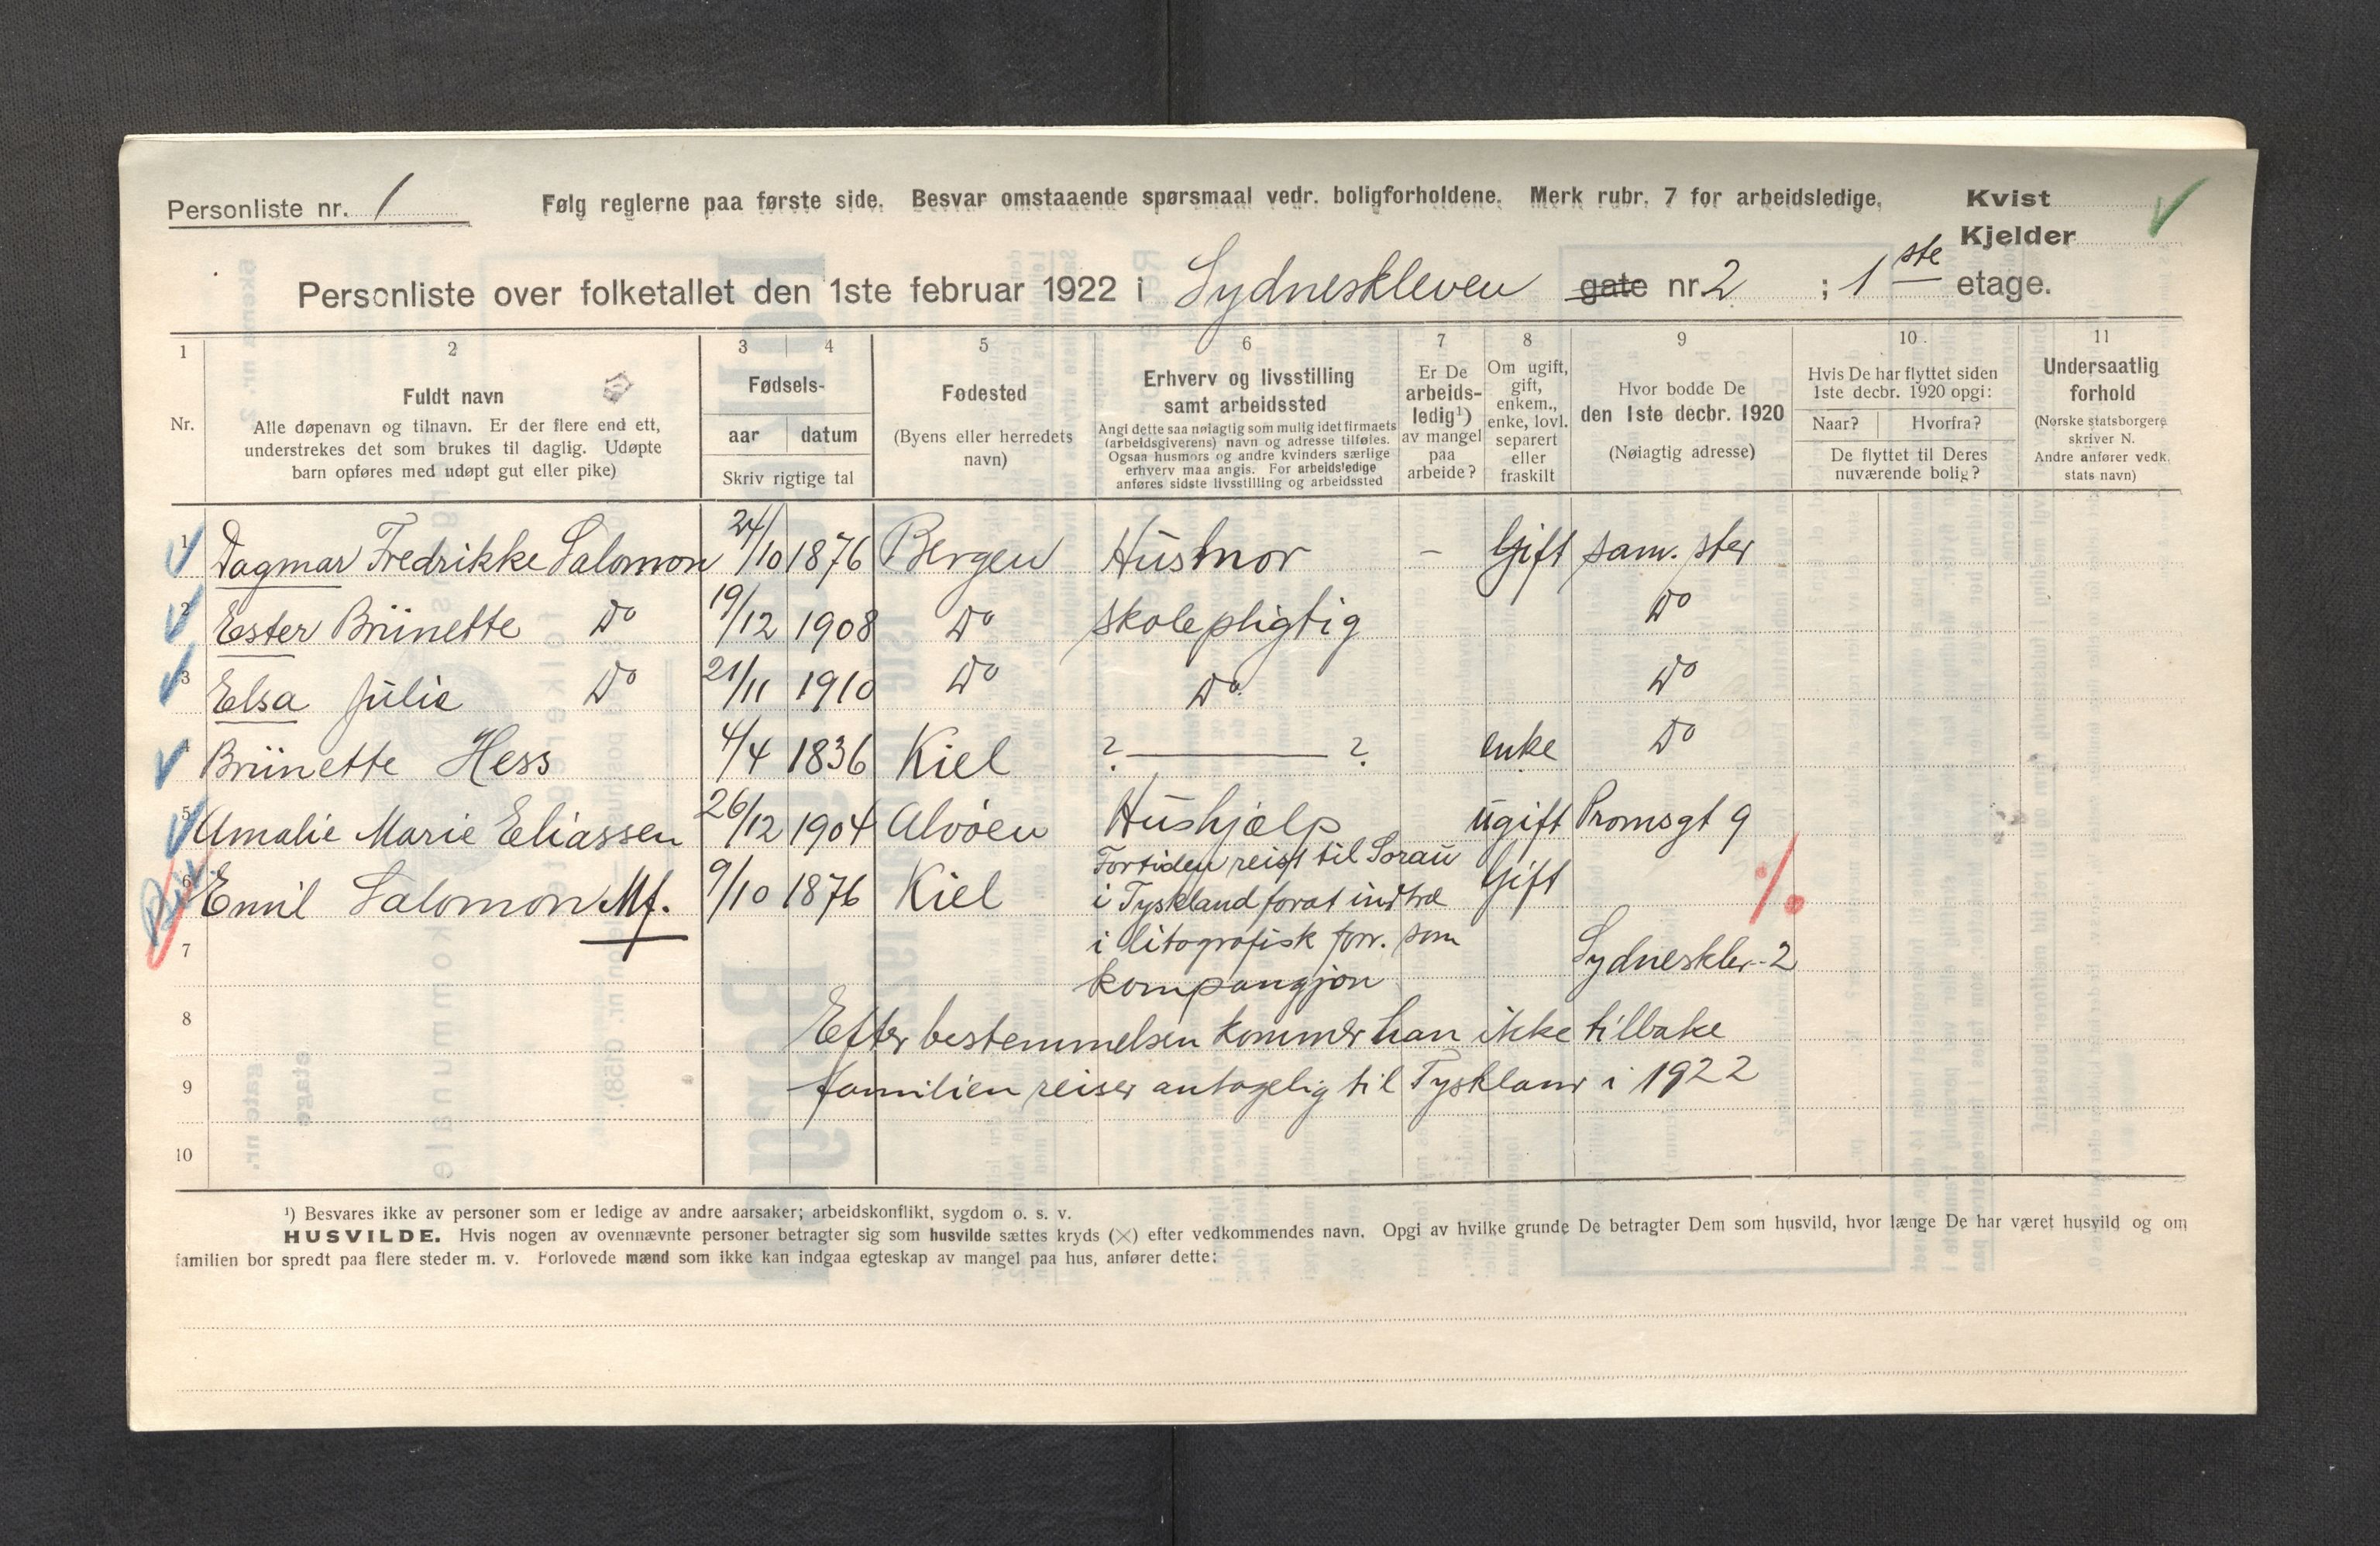 Personliste nr. 1
Følg reglerne paa første side. Besvar omstaaende spørsmaal vedr. boligforholdene. Merk rubr. 7 for arbeidsledige.
Kvist
Kjelder
Personliste over folketallet den 1ste februar 1922 i Sydneskleven gate nr. 2 ; 1ste etage.
1
Nr.
2
Fuldt navn
Alle døpenavn og tilnavn. Er der flere end ett,
understrekes det som brukes til daglig. Udøpte
barn opføres med udøpt gut eller pike)
3 4
Fødsels-
aar datum
Skriv rigtige tal
5
Fødested
(Byens eller herredets
navn)
6
Erhverv og livsstilling
samt arbeidssted
Angi dette saa nøiagtig som mulig idet firmaets
(arbeidsgiverens) navn og adresse tilføies.
Ogsaa husmors og andre kvinders særlige
erhverv maa angis. For arbeidsledige
anføres sidste livsstilling og arbeidssted
7
Er De
arbeids-
ledig¹)
av mangel
paa
arbeide?
8
Om ugift,
gift,
enkem.,
enke, lovl.
separert
eller
fraskilt
9
Hvor bodde De
den 1ste decbr. 1920
(Nøiagtig adresse)
10
Hvis De har flyttet siden
1ste decbr. 1920 opgi:
Naar? Hvorfra?
De flyttet til Deres
nuværende bolig?
11
Undersaatlig
forhold
(Norske statsborgere
skriver N.
Andre anfører vedk.
stats navn)
1 Dagmar Fredrikke Salomon 24/10 1876 Bergen Husmor – Gift sam. ster
2 Ester Brünette Do 19/12 1908 Do skolepligtig Do
3 Elsa Julie Do 21/11 1910 Do Do Do
4 Brünette Hess 4/4 1836 Kiel ? — ? enke Do
5 Amalie Marie Eliassen 26/12 1904 Alvøen Hushjælp ugift Promsgt 9
6 Emil Salomon Mf. 9/10 1876 Kiel Fortiden reist til Sorau Gift %
i Tyskland forat indtræ
7 i litografisk forr. som Sydneskler. 2
kompangjon
8 Efter bestemmelsen kommer han ikke tilbake
9 familien reiser antagelig til Tyskland i 1922
10
¹) Besvares ikke av personer som er ledige av andre aarsaker; arbeidskonflikt, sygdom o. s. v.
HUSVILDE. Hvis nogen av ovennævnte personer betragter sig som husvilde sættes kryds (×) efter vedkommendes navn. Opgi av hvilke grunde De betragter Dem som husvild, hvor længe De har været husvild og om
familien bor spredt paa flere steder m. v. Forlovede mænd som ikke kan indgaa egteskap av mangel paa hus, anfører dette: